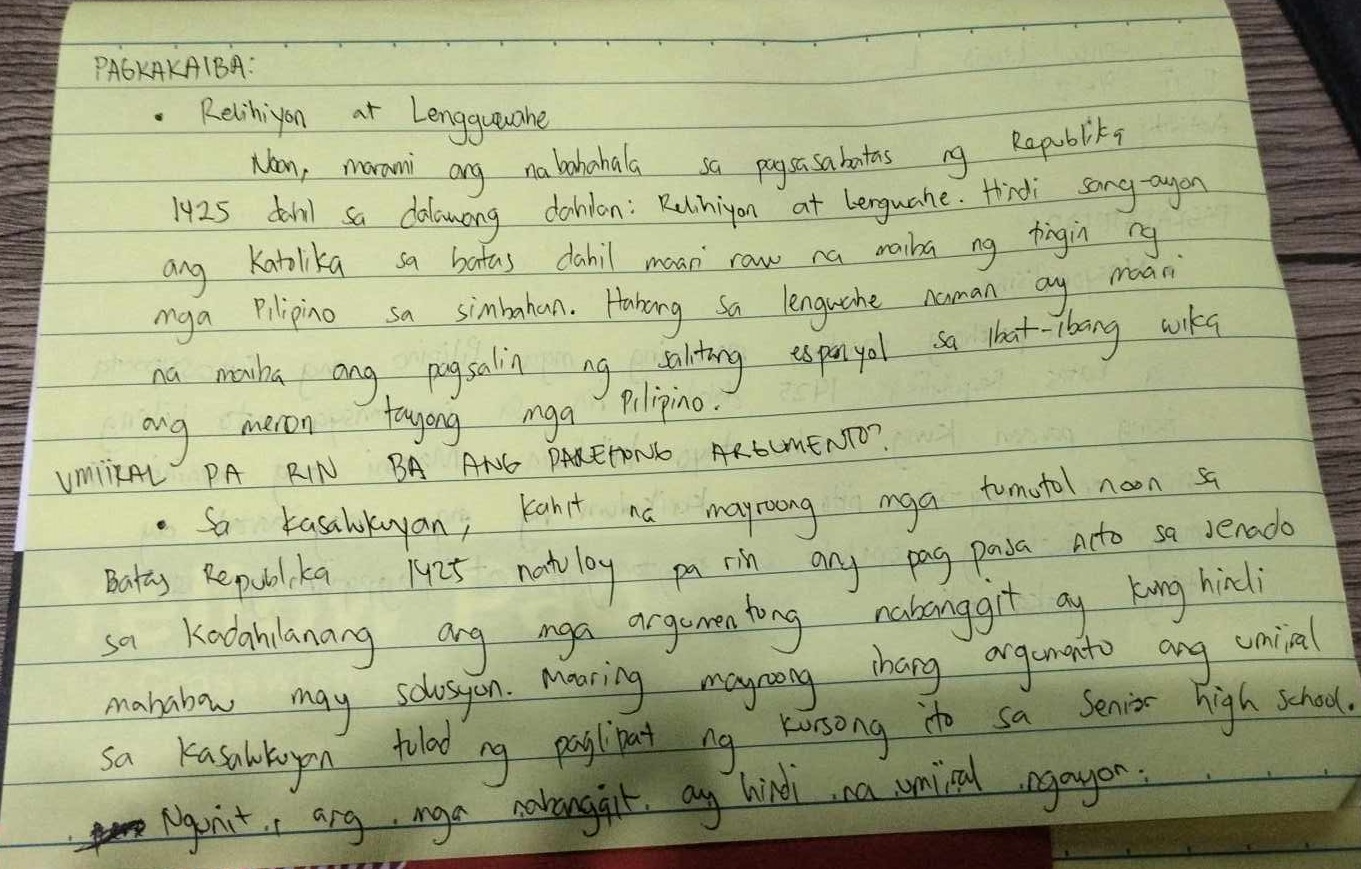 PAGKAKAIBA:
• Relihiyon at Lengguwahe
Noon, marami ang nababahala sa pagsasabatas ng Republika
1425 dahil sa dalawang dahilan: Relihiyon at Lenguahe. Hindi sang-ayon
ang Katolika sa batas dahil maari raw na maiba ng tingin ng
mga Pilipino sa simbahan. Habang sa lenguahe naman ay maari
na maiba ang pagsalin ng salitang espanyol sa ibat-ibang wika
ang meron tayong mga Pilipino.
UMIIRAL PA RIN BA ANG PAREHONG ARGUMENTO?
• Sa kasalukuyan, kahit na mayroong mga tumutol noon sa
Batas Republika 1425 natuloy pa rin ang pag pasa nito sa senado
sa kadahilanang ang mga argumentong nabanggit ay kung hindi
mababaw may solusyon. Maaring mayroong ibang argumento ang umiiral
sa kasalukuyan tulad ng paglipat ng kursong ito sa Senior high school.
Ngunit, ang mga nabanggit ay hindi na umiiral ngayon.